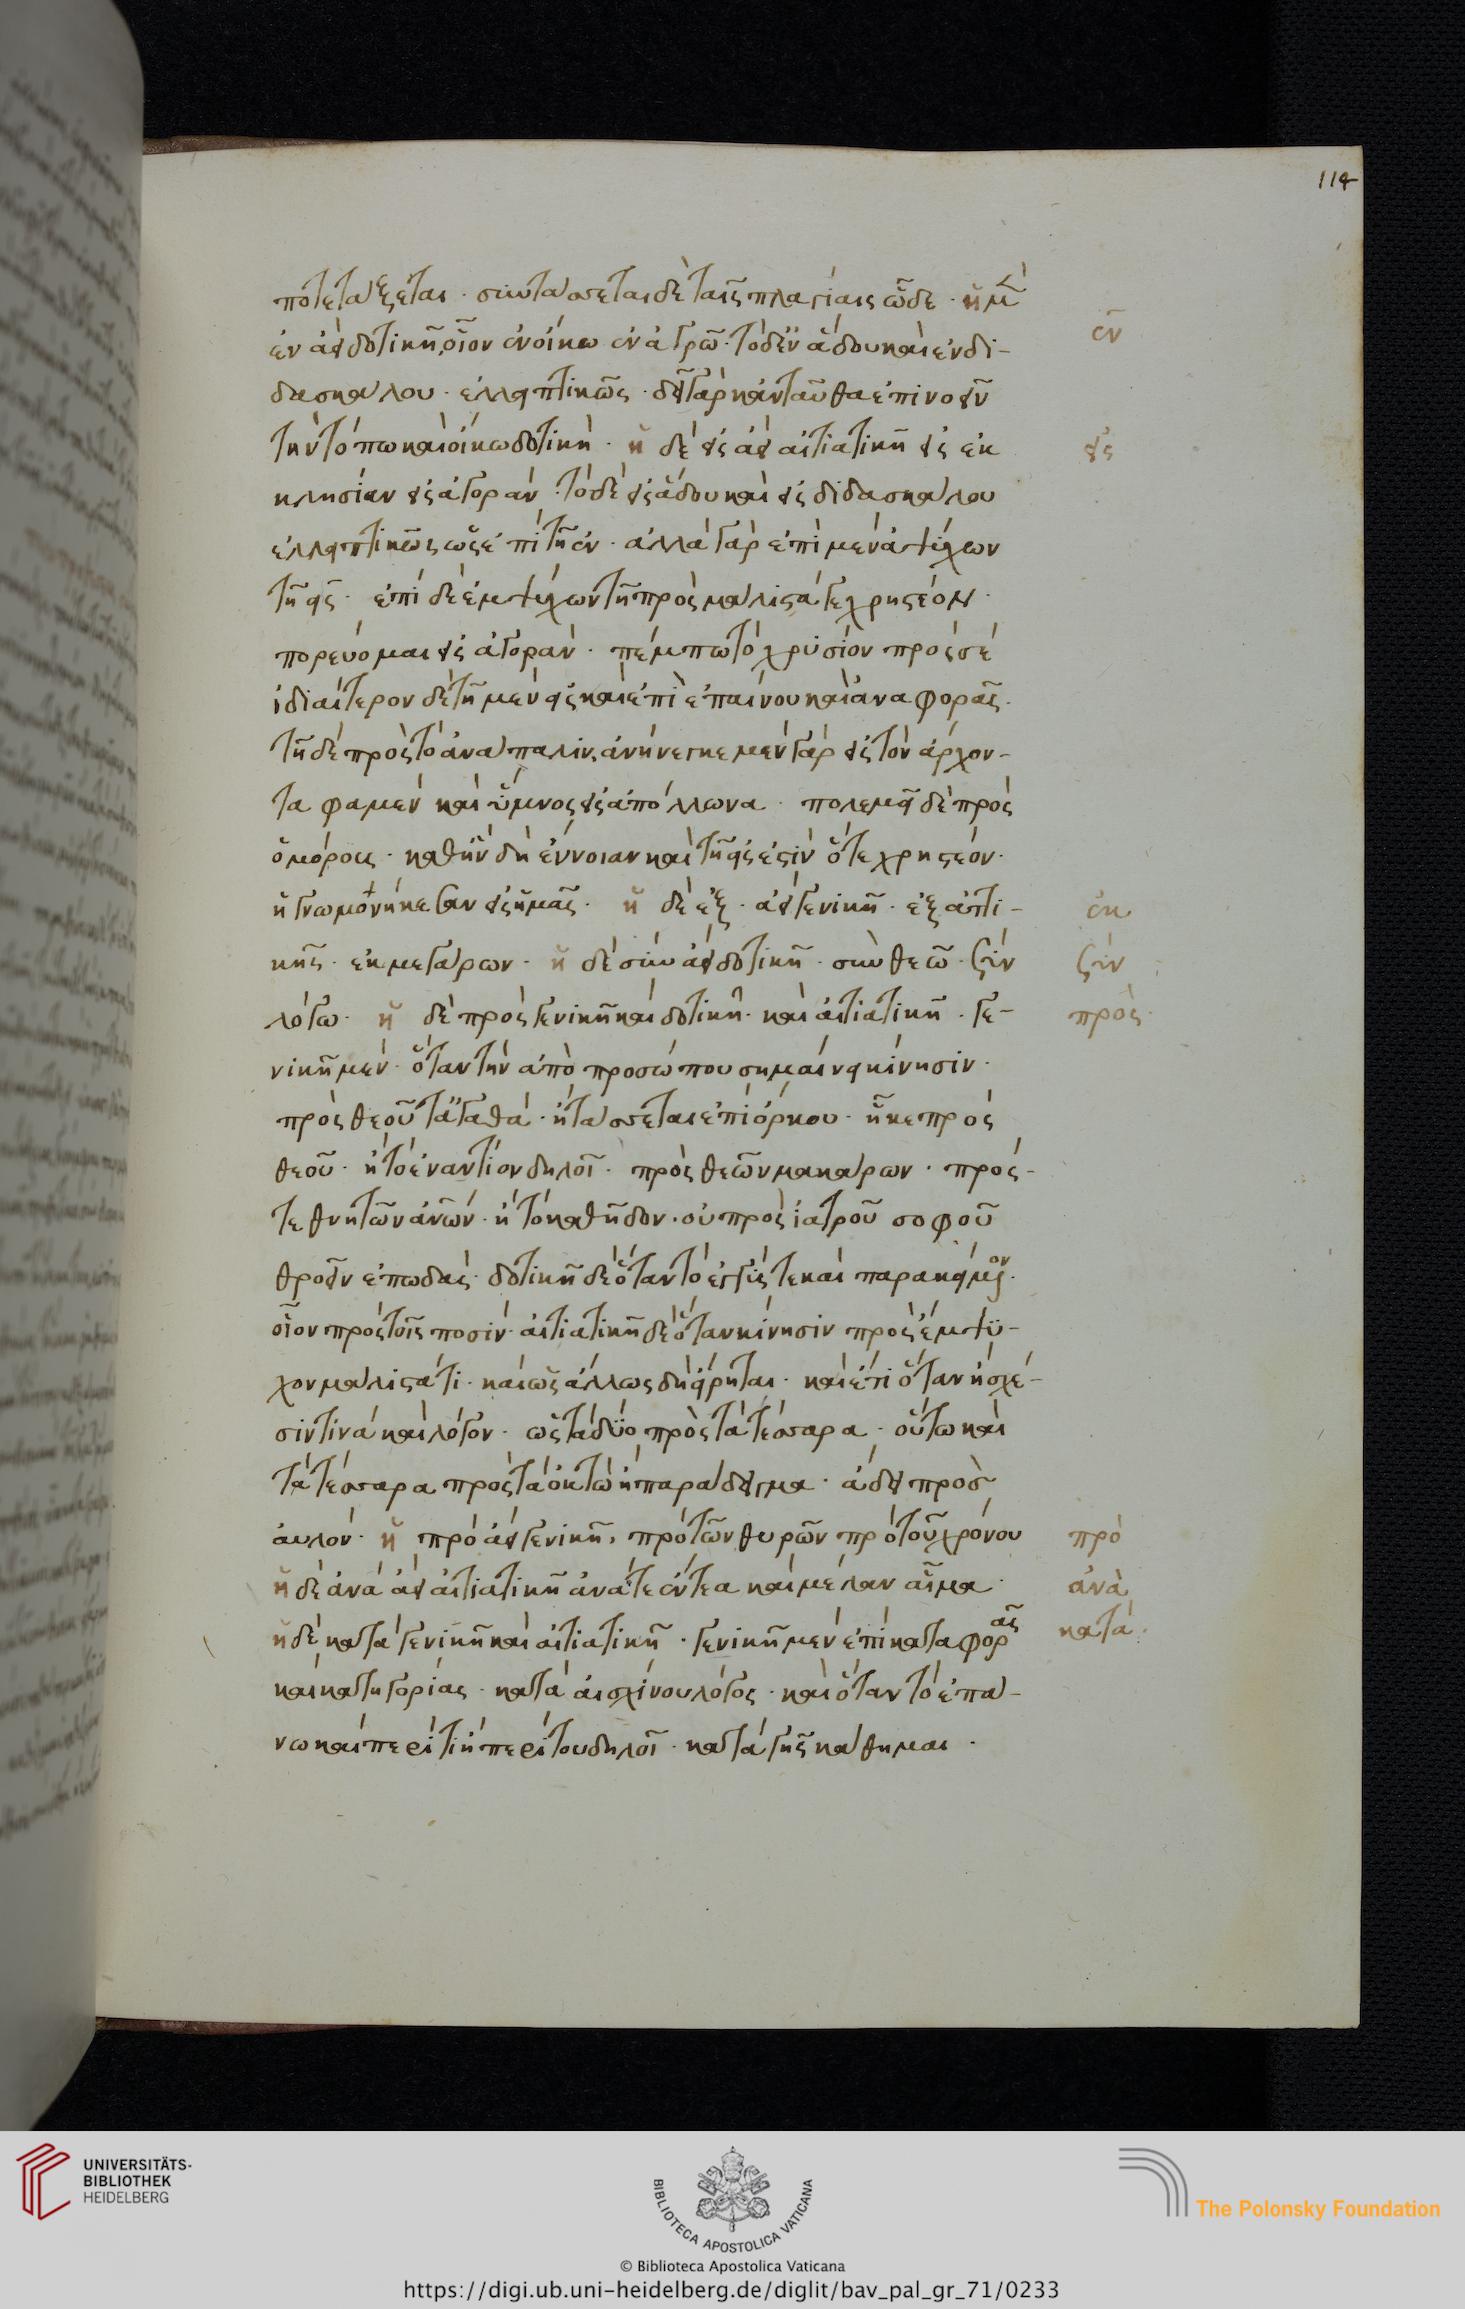 114
ποτε τάξεται · συντάσσεται δὲ ταῖς πλαγίαις ὧδε · ἡ μὲν
ἐν ἀεὶ δοτικῇ, οἷον ἐν οἴκω ἐν ἀγρῶ · τὸ δ' ἐν ἅδου καὶ ἐν δι-
δασκάλου · ἐλλειπτικῶς · δεῖ γὰρ κἀνταῦθα ἐπινοεῖν
τὴν τόπω καὶ οἴκω δοτικὴν · ἡ δὲ εἰς ἀεὶ αἰτιατικῆ εἰς ἐκ
κλησίαν εἰς ἀγορὰν · τὸ δὲ εἰς ἅδου καὶ εἰς διδασκάλου
ἐλλειπτικῶς ὡς ἐπὶ τῆ ἐν · ἀλλὰ γὰρ ἐπὶ μὲν ἀψύχων
τῆ εἰς · ἐπὶ δὲ ἐμψύχων τῆ πρὸς μάλιστά γε χρηστέον ·
πορεύομαι εἰς ἀγορὰν · πέμπω τὸ χρυσίον πρὸς σέ
ἰδιαίτερον δὲ τῆ μὲν εἰς καὶ ἐπὶ ἐπαίνου καὶ ἀναφορᾶς ·
τῆ δὲ πρὸς τὸ ἀνάπαλιν, ἀνήνεγκε μὲν γὰρ εἰς τὸν ἄρχον-
τα φαμὲν καὶ ὕμνος εἰς ἀπόλλωνα · πολεμεῖ δὲ πρὸς
ὁμόρους · καθ' ἣν δὴ ἔννοιαν καὶ τῆ εἰς ἐστὶν ὅτε χρηστέον ·
ἡ γνώμονὴ ἧκεσαν εἰς ἡμᾶς · ἡ δὲ ἐξ · ἀεὶ γενικῆ · ἐξ ἀττι-
κῆς · ἐκ μεγάρων · ἡ δὲ σὺν ἀεὶ δοτικῆ · σὺν θεῶ · ξὺν
λόγω · ἡ δὲ πρὸς γενικῆ καὶ δοτικῆ · καὶ αἰτιατικῆ · γε-
νικῆ μὲν · ὅταν τὴν ἀπὸ προσώπου σημαίνει κίνησιν ·
πρὸς θεοῦ τἀγαθά · ἢ τάσσεται ἐπὶ ὅρκου · ἧκε πρὸς
θεοῦ · ἢ τὸ ἐναντίον δηλοῖ · πρὸς θεῶν μακάρων · πρός-
τε θνητῶν ἀνῶν · ἢ τὸ καθῆκον · οὐ πρὸς ἰατροῦ σοφοῦ
θροεῖν ἐπωδάς · δοτικῆ δὲ ὅταν τὸ ἐγγύς τε καὶ παρακείμενον ·
οἷον πρὸς τοῖς ποσίν · αἰτιατικῆ δὲ ὅταν κίνησιν πρὸς ἔμψυ-
χον μάλιστά τι · καὶ ὡς ἄλλως δὴ εἴρηται · καὶ ἔτι ὅταν ἢ σχέ-
σιν τινὰ καὶ λόγον · ὡς τὰ δύο πρὸς τὰ τέσσαρα · οὕτω καὶ
τὰ τέσσαρα πρὸς τὰ ὀκτὼ ἢ παράδειγμα · ἄδει πρὸς
αὐλόν · ἡ πρὸ ἀεὶ γενικῆ, πρὸ τῶν θυρῶν πρὸ τοῦ χρόνου
ἡ δὲ ἀνὰ ἀεὶ αἰτιατικῆ ἀνά τε ἔντεα καὶ μέλαν αἷμα ·
ἡ δὲ κατὰ γενικῆ καὶ αἰτιατικῆ · γενικῆ μὲν ἐπὶ καταφορᾶς
καὶ κατηγορίας · κατὰ αἰσχίνου λόγος · καὶ ὅταν τὸ ἐπά-
νω καὶ περί τι ἢ περί του δηλοῖ · κατὰ γῆς κάθημαι ·
ἐν
εἰς
ἐκ
ξὺν
πρὸς ·
πρὸ
ἀνὰ
κατά ·
UNIVERSITÄTS-
BIBLIOTHEK
HEIDELBERG
BIBLIOTECA APOSTOLICA VATICANA
The Polonsky Foundation
© Biblioteca Apostolica Vaticana
https://digi.ub.uni-heidelberg.de/diglit/bav_pal_gr_71/0233